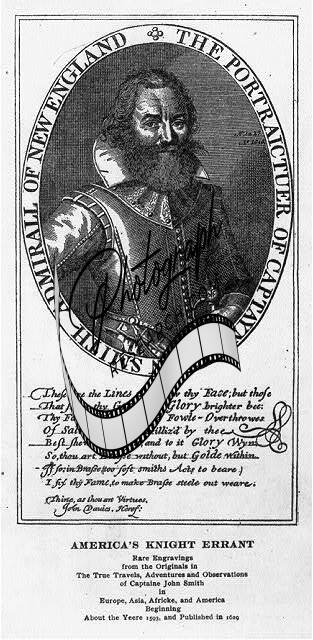 THE PORTRAICTUER OF CAPTAY
SMITH ADMIRALL OF NEW ENGLAND
Photograph
These are the Lines thy Face; but those
That thy Glory brighter bee:
Thy Fowle-Overthrowes
Of Sal by thee
Best and to it Glory Wyn
So, thou art without, but Golde within.
If so; in Brasse too soft smiths Acts to beare
I fix thy Fame, to make Brasse steele out weare.
Thine, as thou art Virtues,
John Davies. Heref:
AMERICA'S KNIGHT ERRANT
Rare Engravings
from the Originals in
The True Travels, Adventures and Observations
of Captaine John Smith
in
Europe, Asia, Africke, and America
Beginning
About the Yeere 1593, and Published in 1629